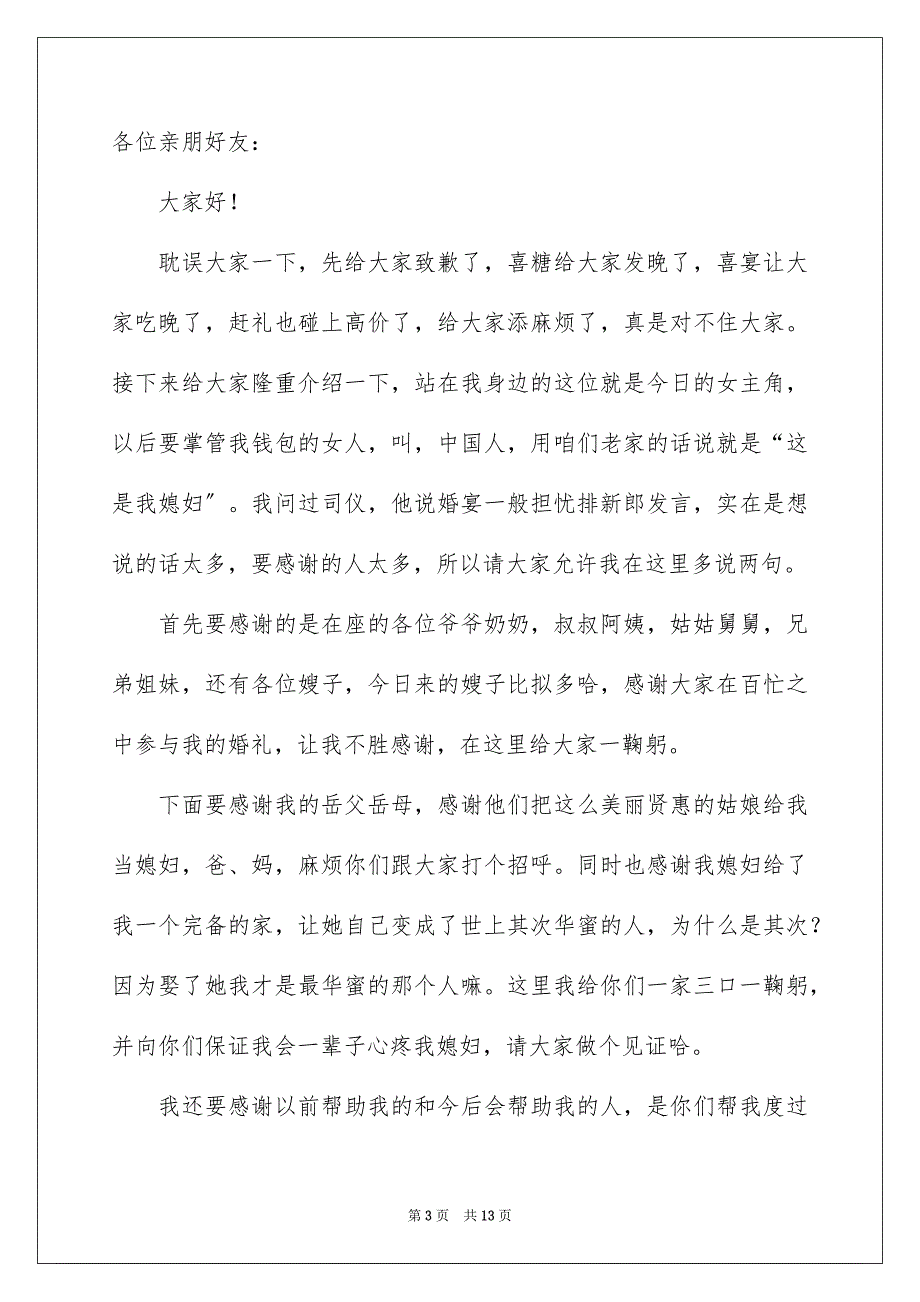 各位亲朋好友：
大家好！
耽误大家一下，先给大家致歉了，喜糖给大家发晚了，喜宴让大
家吃晚了，赶礼也碰上高价了，给大家添麻烦了，真是对不住大家。
接下来给大家隆重介绍一下，站在我身边的这位就是今日的女主角，
以后要掌管我钱包的女人，叫，中国人，用咱们老家的话说就是“这
是我媳妇〞。我问过司仪，他说婚宴一般担忧排新郎发言，实在是想
说的话太多，要感谢的人太多，所以请大家允许我在这里多说两句。
首先要感谢的是在座的各位爷爷奶奶，叔叔阿姨，姑姑舅舅，兄
弟姐妹，还有各位嫂子，今日来的嫂子比拟多哈，感谢大家在百忙之
中参与我的婚礼，让我不胜感谢，在这里给大家一鞠躬。
下面要感谢我的岳父岳母，感谢他们把这么美丽贤惠的姑娘给我
当媳妇，爸、妈，麻烦你们跟大家打个招呼。同时也感谢我媳妇给了
我一个完备的家，让她自己变成了世上其次华蜜的人，为什么是其次？
因为娶了她我才是最华蜜的那个人嘛。这里我给你们一家三口一鞠躬，
并向你们保证我会一辈子心疼我媳妇，请大家做个见证哈。
我还要感谢以前帮助我的和今后会帮助我的人，是你们帮我度过
第 3 页 共 13 页